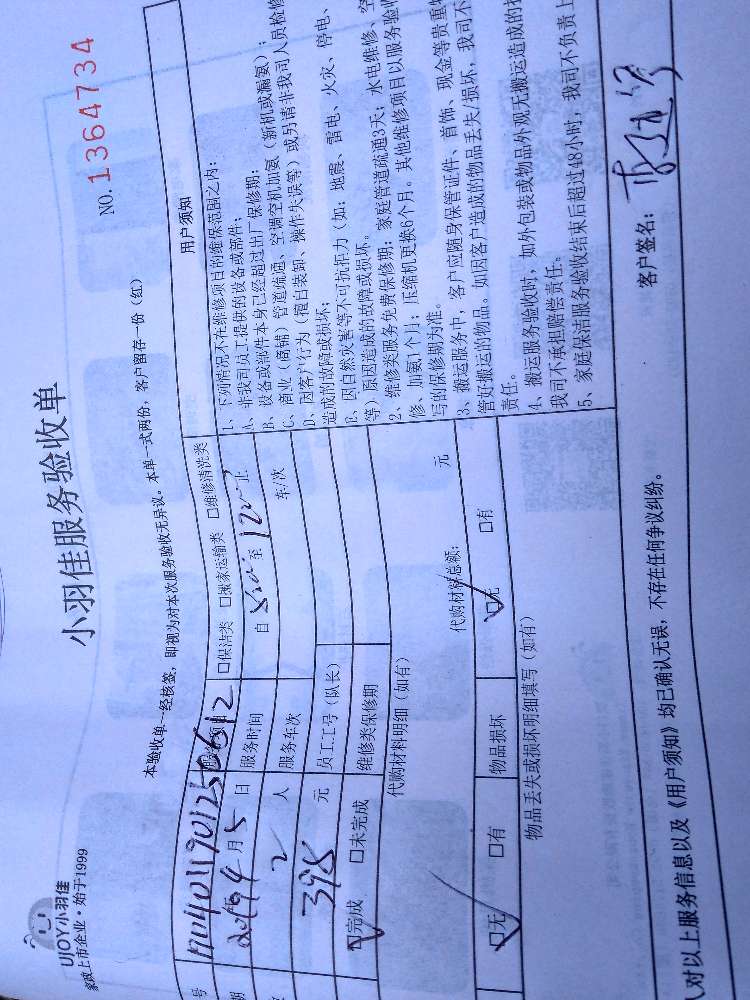 UJOY小羽佳
家政上市企业·始于1999
小羽佳服务验收单
NO. 1364734
本验收单一经核签，即视为对本次服务验收无异议。本单一式两份，客户留存一份（红）
号
□保洁类 □搬家运输类 □维修清洗类
期 4 月 5 日
服务时间 自 至 止
2 人
服务车次 车/次
395 元
员工工号（队长）
☑完成 □未完成
维修类保修期
代购材料明细（如有）
代购材料总额： 元
☑无 □有
物品损坏 ☑无 □有
物品丢失或损坏明细填写（如有）
用户须知
1、下列情况不在维修项目的维保范围之内：
A、非我司员工提供的设备或部件；
B、设备或部件本身已经超过出厂保修期；
C、商业（商铺）管道疏通、空调空机加氨（新机或漏氨）；
D、因客户行为（擅自装卸、操作失误等）或另请非我司人员检修
造成的故障或损坏；
E、因自然灾害等不可抗拒力（如：地震、雷电、火灾、停电、
等）原因造成的故障或损坏。
2、维修类服务免费保修期：家庭管道疏通3天；水电维修、空
修、加氨1个月；压缩机更换6个月。其他维修项目以服务验收
写的保修期为准。
3、搬运服务中，客户应随身保管证件、首饰、现金等贵重物
管好搬运的物品。如因客户造成的物品丢失/损坏，我司不
责任。
4、搬运服务验收时，如外包装或物品外观无搬运造成的损
我司不承担赔偿责任。
5、家庭保洁服务验收结束后超过48小时，我司不负责上
人对以上服务信息以及《用户须知》均已确认无误，不存在任何争议纠纷。
客户签名：